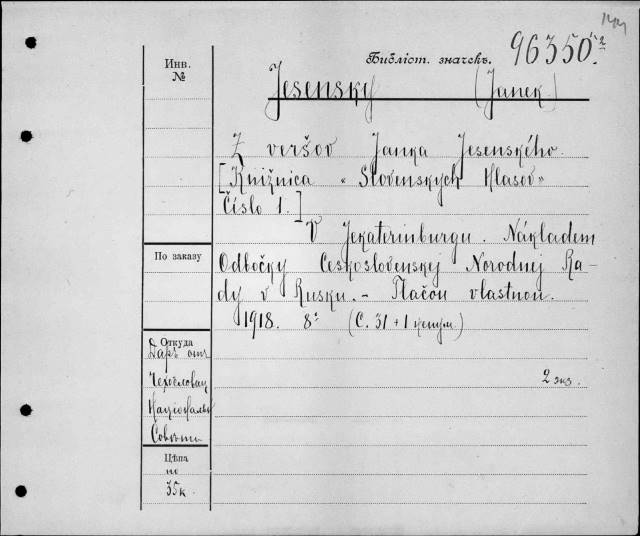 Библіот. значекъ. 96350.²
Инв.
№
Jesensky (Janek)
Z veršov Janka Jesenského.
[Knižnica «Slovenskych Hlasov»
Číslo 1.]
V Jekaterinburgu. Nákladem
Odbočky Československej Norodnej Ra-
dy v Rusku. - Tlačou vlastnou.
1918. 8° (С. 31 + 1 ненум.)
2 экз.
По заказу
Откуда
Даръ отъ
Чехословац.
Національн.
Совѣта
Цѣна
по
35 к.